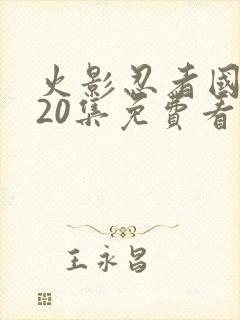 火影忍者國
20集免費看
王永昌